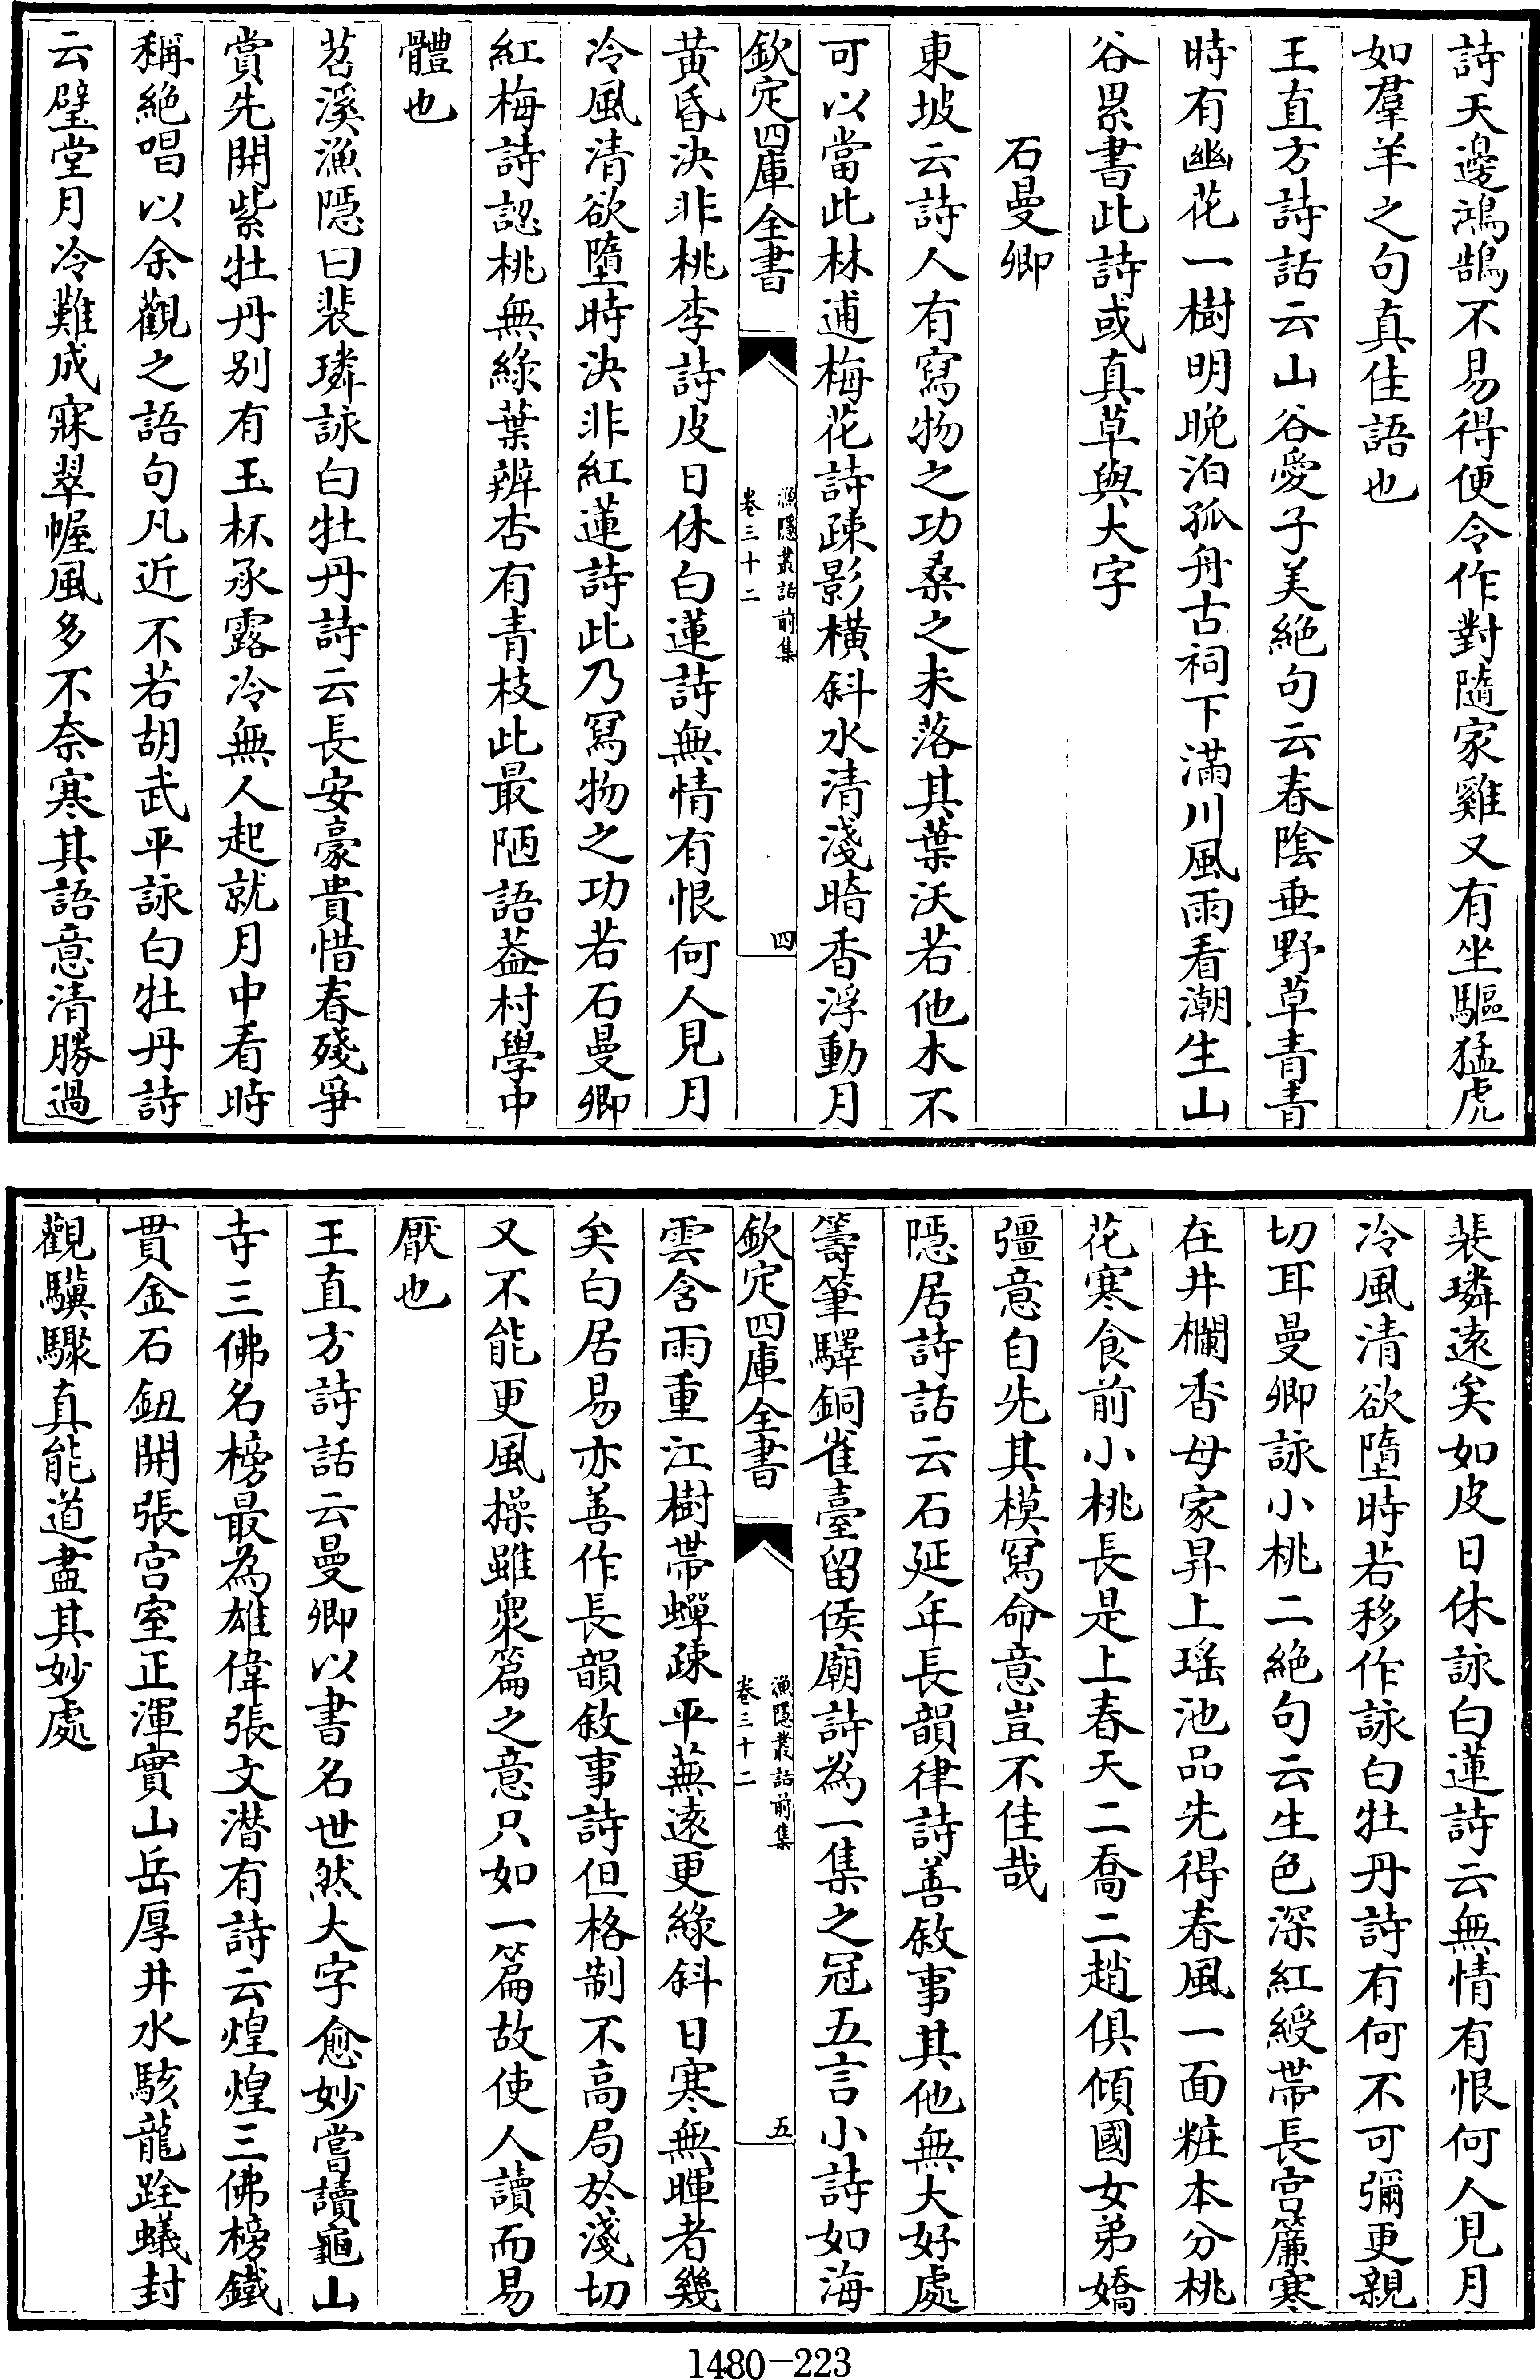 詩天邊鴻鵠不易得便令作對隨家雞又有坐驅猛虎
如羣羊之句真佳語也
王直方詩話云山谷愛子美絶句云春陰垂野草青青
時有幽花一樹明晚泊孤舟古祠下滿川風雨看潮生山
谷累書此詩或真草與大字
石曼卿
東坡云詩人有寫物之功桑之未落其葉沃若他木不
可以當此林逋梅花詩疎影橫斜水清淺暗香浮動月
欽定四庫全書
漁隱叢話前集
卷三十二
四
黃昏決非桃李詩皮日休白蓮詩無情有恨何人見月
冷風清欲墮時決非紅蓮詩此乃寫物之功若石曼卿
紅梅詩認桃無綠葉辨杏有青枝此最陋語葢村學中
體也
苕溪漁隱曰裴璘詠白牡丹詩云長安豪貴惜春殘爭
賞先開紫牡丹别有玉杯承露冷無人起就月中看時
稱絶唱以余觀之語句凡近不若胡武平詠白牡丹詩
云璧堂月冷難成寐翠幄風多不奈寒其語意清勝過
裴璘遠矣如皮日休詠白蓮詩云無情有恨何人見月
冷風清欲墮時若移作詠白牡丹詩有何不可彌更親
切耳曼卿詠小桃二絶句云生色深紅綬帶長宫簾寒
在井欄香母家昇上瑤池品先得春風一面粧本分桃
花寒食前小桃長是上春天二喬二趙俱傾國女弟嬌
彊意自先其模寫命意豈不佳哉
隱居詩話云石延年長韻律詩善敘事其他無大好處
籌筆驛銅雀臺留侯廟詩為一集之冠五言小詩如海
欽定四庫全書
漁隱叢話前集
卷三十二
五
雲含雨重江樹帶蟬疎平蕪遠更綠斜日寒無暉者幾
矣白居易亦善作長韻敘事詩但格制不高局於淺切
又不能更風操雖衆篇之意只如一篇故使人讀而易
厭也
王直方詩話云曼卿以書名世然大字愈妙嘗讀龜山
寺三佛名榜最為雄偉張文潛有詩云煌煌三佛榜鐵
貫金石鈕開張宫室正渾實山岳厚井水駭龍跧蟻封
觀驥驟真能道盡其妙處
1480-223